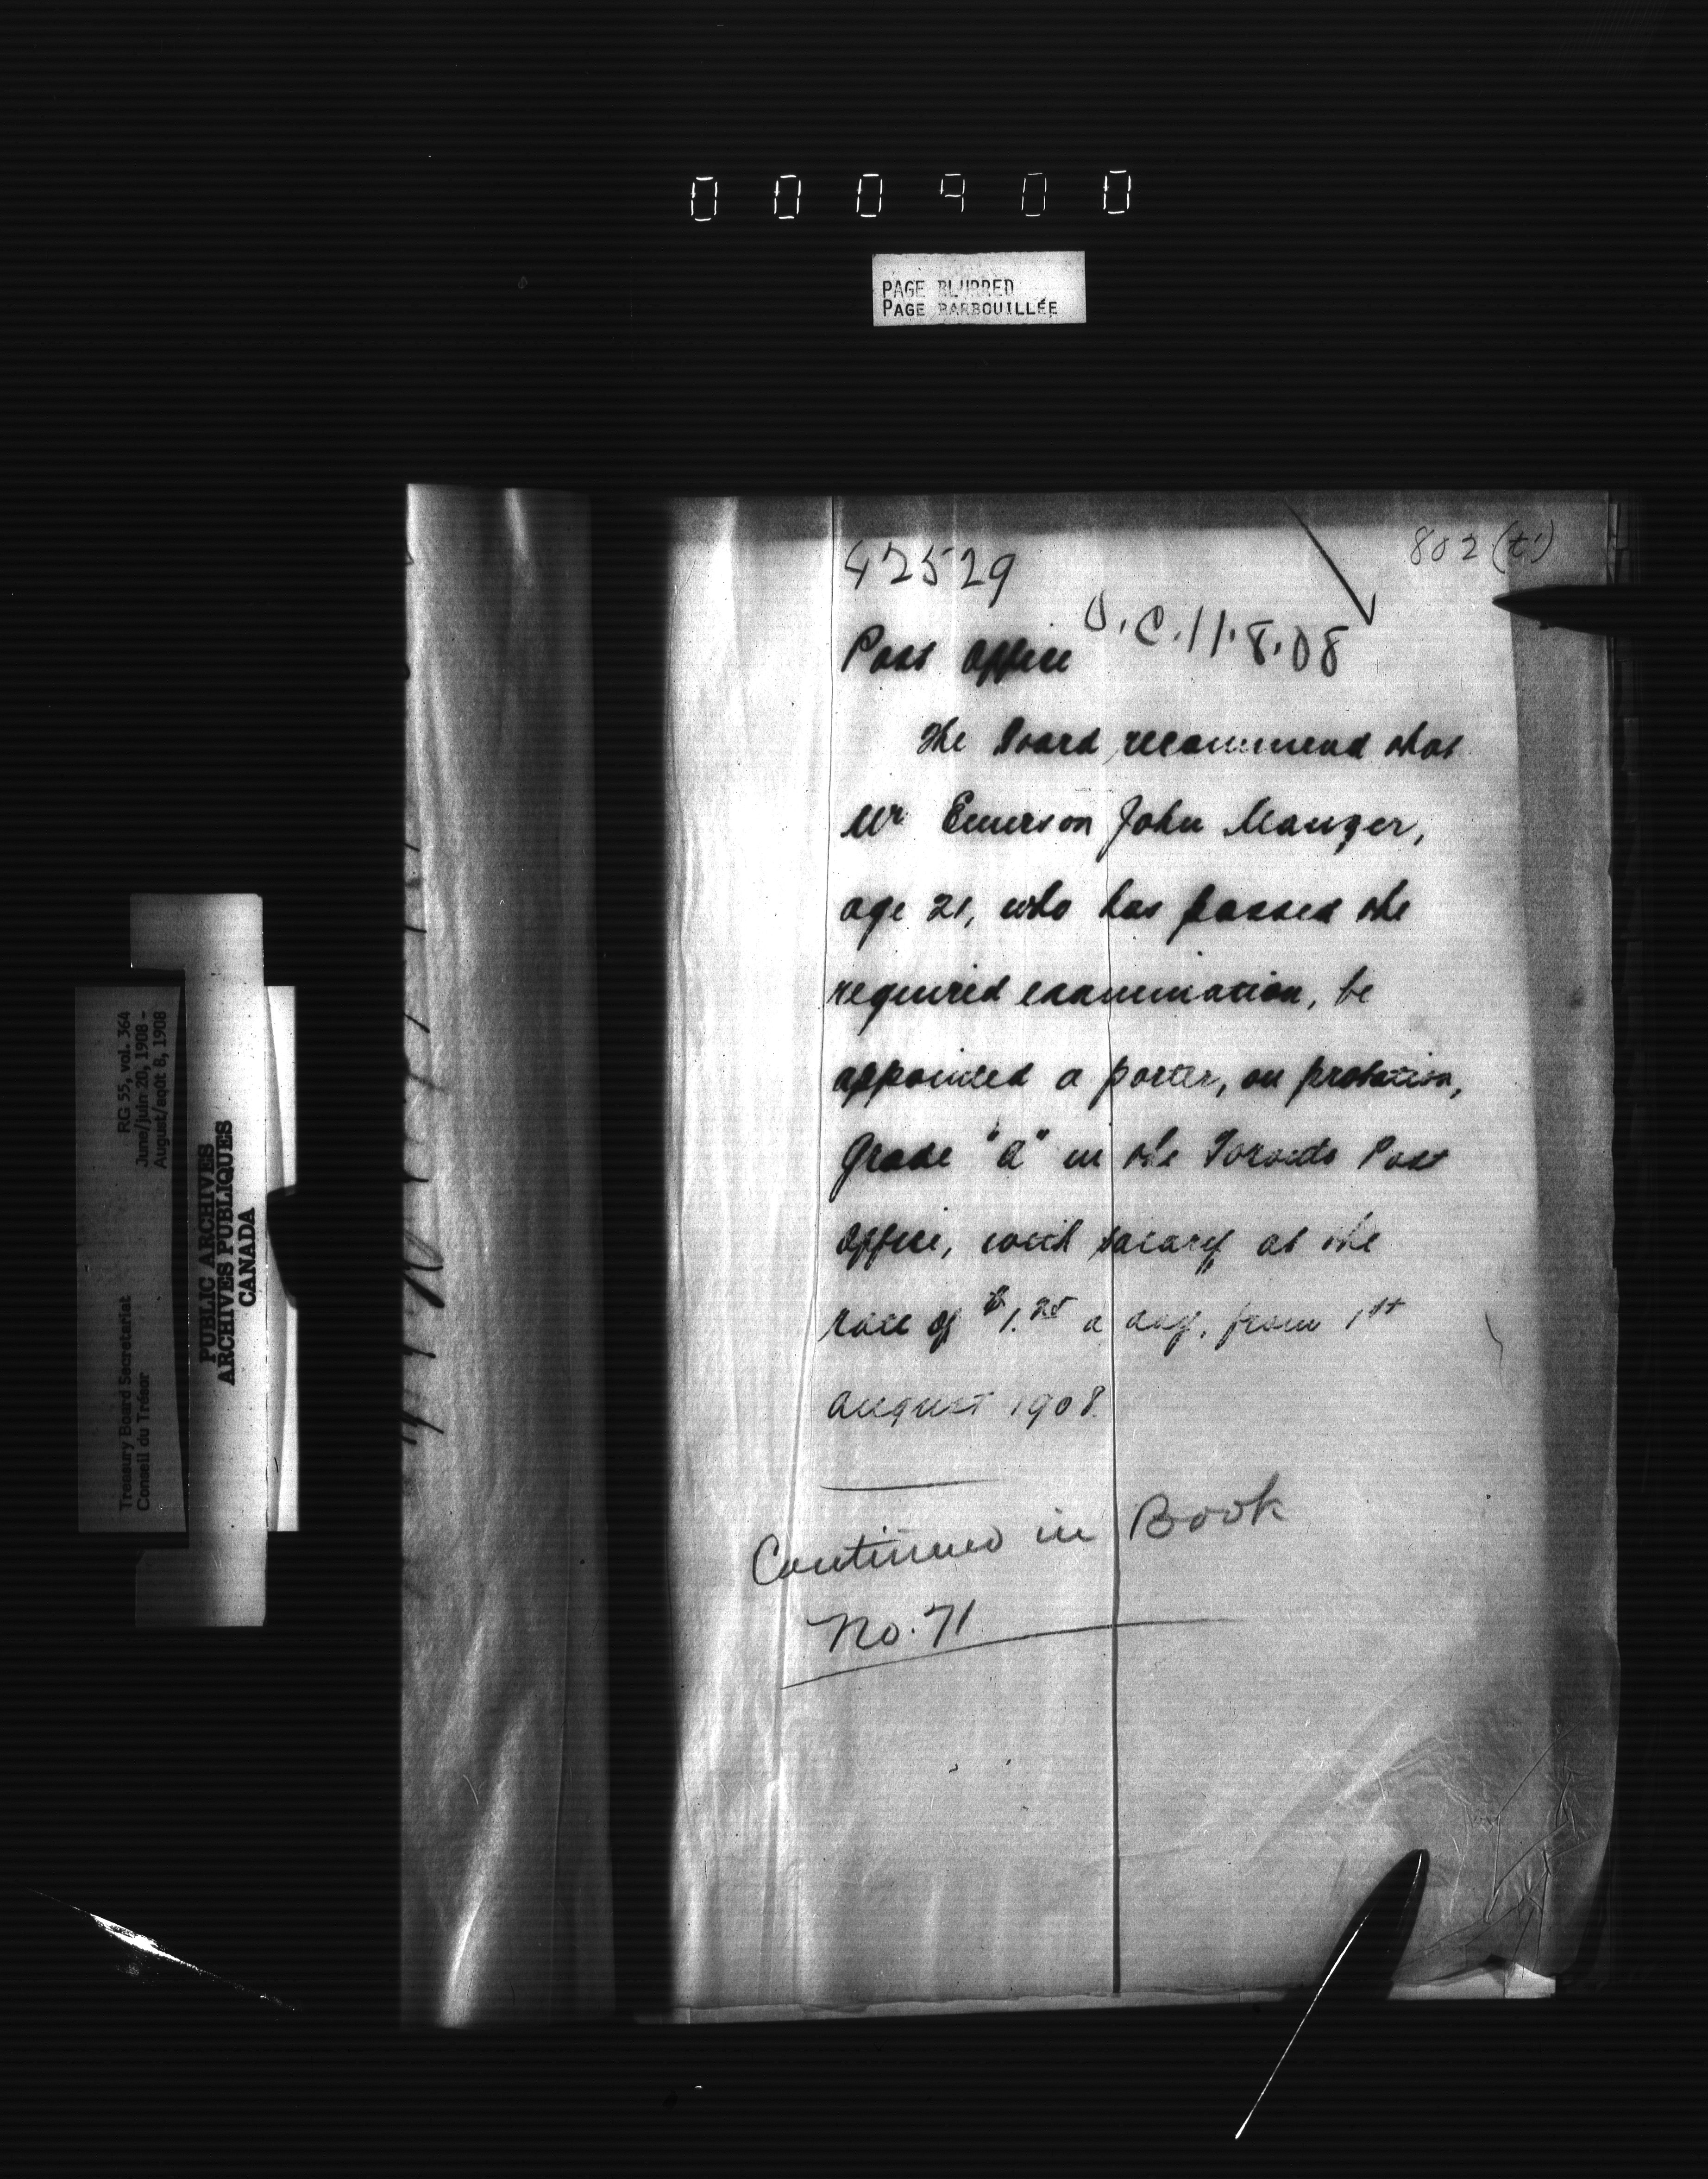 000900
PAGE BLURRED
PAGE BARBOUILLÉE
802 (t')
42529
O.C. 11.8.08
Post Office
The Board recommend that
Mr Emerson John Mauger,
age 21, who has passed the
required examination, be
appointed a porter, on probation,
Grade "a" in the Toronto Post
Office, with salary at the
rate of $1.25 a day, from 1st
August 1908.
Continued in Book
No. 71
RG 55, vol. 364
June/juin 20, 1908 -
August/août 8, 1908
Treasury Board Secretariat
Conseil du Trésor
PUBLIC ARCHIVES
ARCHIVES PUBLIQUES
CANADA